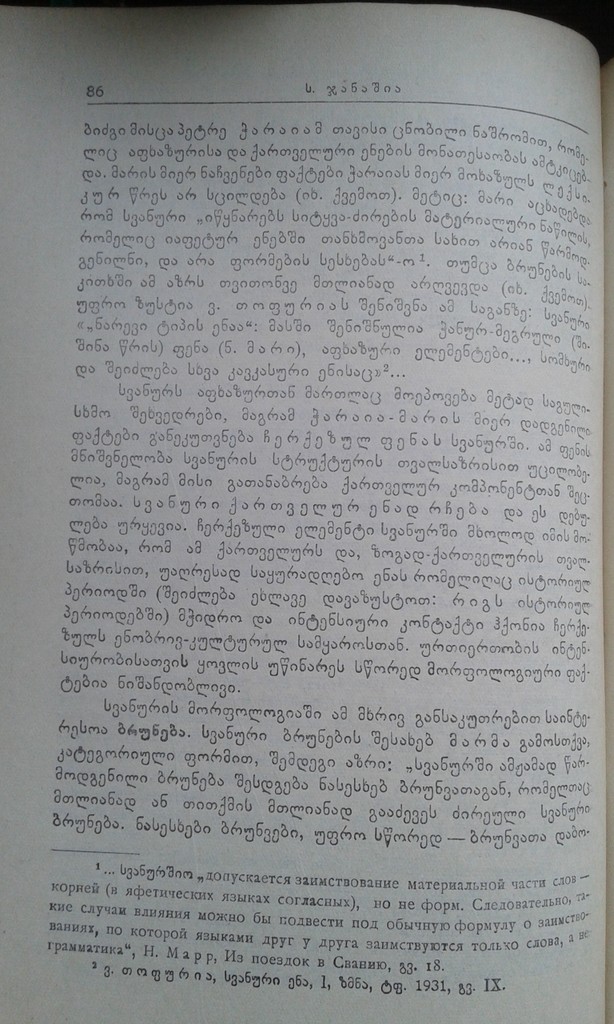 86
ს. ჯანაშია
ბიძგი მისცა პეტრე ჭარაიამ თავისი ცნობილი ნაშრომით, რომე-
ლიც აფხაზურისა და ქართველური ენების მონათესაობას ამტკიცებ-
და. მარის მიერ ნაჩვენები ფაქტები ჭარაიას მიერ მოხაზულს ლექსი-
კურ წრეს არ სცილდება (იხ. ქვემოთ). მეტიც: მარი აცხადებდა,
რომ სვანური „იწყნარებს სიტყვა-ძირების მატერიალური ნაწილის,
რომელიც იაფეტურ ენებში თანხმოვანთა სახით არიან წარმოდ-
გენილნი, და არა ფორმების სესხებას“-ო¹. თუმცა ბრუნების სა-
კითხში ამ აზრს თვითონვე მთლიანად არღვევდა (იხ. ქვემოთ).
უფრო ზუსტია ვ. თოფურიას შენიშვნა ამ საგანზე: სვანური
«„ნარევი ტიპის ენაა“: მასში შენიშნულია ჭანურ-მეგრული (ში-
შინა წრის) ფენა (ნ. მარი), აფხაზური ელემენტები..., სომხური
და შეიძლება სხვა კავკასური ენისაც»²...
სვანურს აფხაზურთან მართლაც მოეპოვება მეტად საგული-
სხმო შეხვედრები, მაგრამ ჭარაია-მარის მიერ დადგენილი
ფაქტები განეკუთვნება ჩერქეზულ ფენას სვანურში. ამ ფენის
მნიშვნელობა სვანურის სტრუქტურის თვალსაზრისით უცილობე-
ლია, მაგრამ მისი გათანაბრება ქართველურ კომპონენტთან შეც-
თომაა. სვანური ქართველურ ენად რჩება და ეს დებუ-
ლება ურყევია. ჩერქეზული ელემენტი სვანურში მხოლოდ იმის მო-
წმობაა, რომ ამ ქართველურს და, ზოგად-ქართველურის თვალ-
საზრისით, უაღრესად საყურადღებო ენას რომელიღაც ისტორიულ
პერიოდში (შეიძლება ეხლავე დავაზუსტოთ: რიგს ისტორიულ
პერიოდებში) მჭიდრო და ინტენსიური კონტაქტი ჰქონია ჩერქე-
ზულს ენობრივ-კულტურულ სამყაროსთან. ურთიერთობის ინტენ-
სიურობისათვის ყოვლის უწინარეს სწორედ მორფოლოგიური ფაქ-
ტებია ნიშანდობლივი.
სვანურის მორფოლოგიაში ამ მხრივ განსაკუთრებით საინტე-
რესოა ბრუნება. სვანური ბრუნების შესახებ მარმა გამოსთქვა,
კატეგორიული ფორმით, შემდეგი აზრი: „სვანურში ამჟამად წარ-
მოდგენილი ბრუნება შესდგება ნასესხებ ბრუნვათაგან, რომელთაც
მთლიანად ან თითქმის მთლიანად გააძევეს ძირეული სვანური
ბრუნება. ნასესხები ბრუნვები, უფრო სწორედ — ბრუნვათა დაბო-
¹ ... სვანურშიო „допускается заимствование материальной части слов —
корней (в яфетических языках согласных), но не форм. Следовательно, та-
кие случаи влияния можно бы подвести под обычную формулу о заимство-
ваниях, по которой языками друг у друга заимствуются только слова, а не
грамматика“, Н. Марр, Из поездок в Сванию, გვ. 18.
² ვ. თოფურია, სვანური ენა, I, ზმნა, ტფ. 1931, გვ. IX.